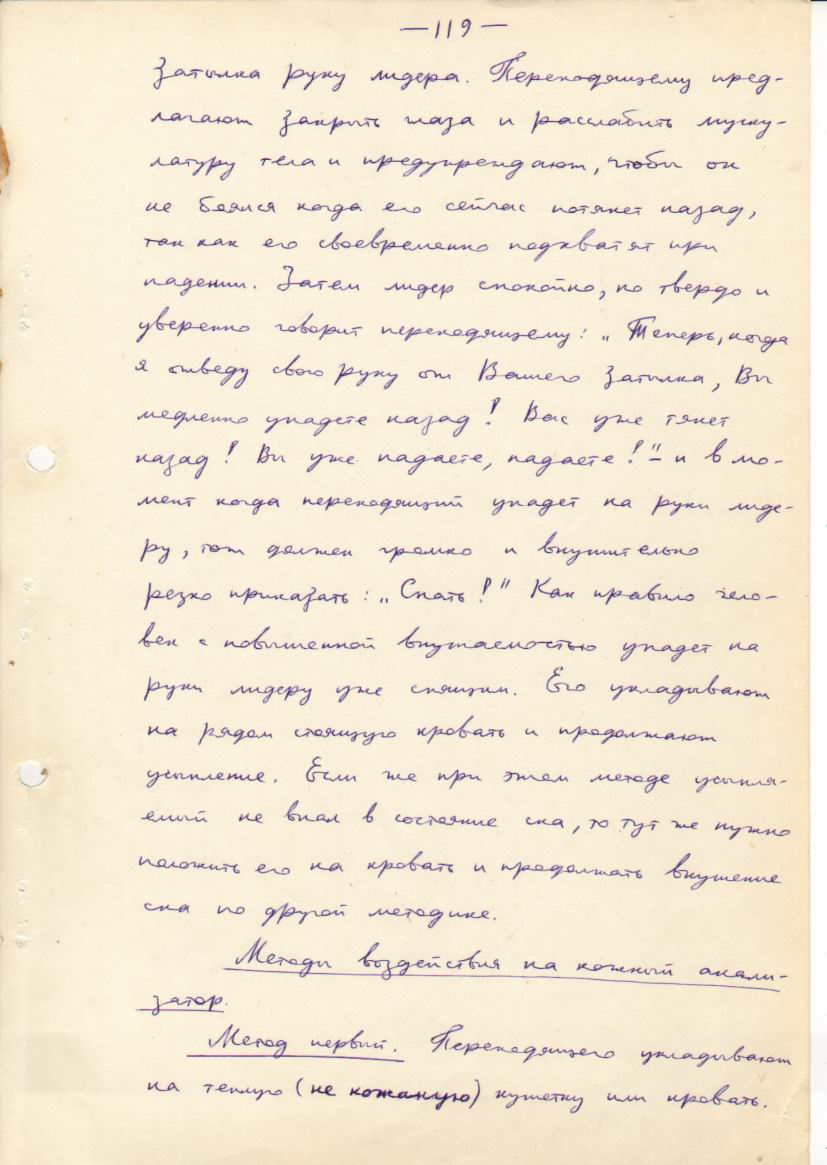 —119—
затылка руку лидера. Переходящему пред-
лагают закрыть глаза и расслабить муску-
латуру тела и предупреждают, чтобы он
не боялся когда его сейчас потянет назад,
так как его своевременно подхватят при
падении. Затем лидер спокойно, но твердо и
уверенно говорит переходящему: „Теперь, когда
я отведу свою руку от Вашего затылка, Вы
медленно упадете назад! Вас уже тянет
назад! Вы уже падаете, падаете!" – и в мо-
мент когда переходящий упадет на руки лиде-
ру, тот должен громко и внушительно
резко приказать: „Спать!" Как правило чело-
век с повышенной внушаемостью упадет на
руки лидеру уже спящим. Его укладывают
на рядом стоящую кровать и продолжают
усыпление. Если же при этом методе усыпля-
емый не впал в состояние сна, то тут же нужно
положить его на кровать и продолжать внушение
сна по другой методике.
Методы воздействия на кожный анали-
затор.
Метод первый. Переходящего укладывают
на теплую (не кожаную) кушетку или кровать.